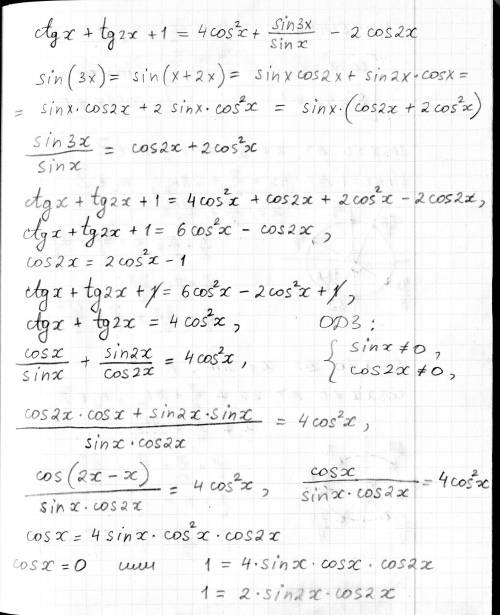 ctg x + tg2x + 1 = 4cos²x + sin3x/sinx - 2 cos2x
sin(3x) = sin(x+2x) = sinx cos2x + sin2x·cosx =
= sinx·cos2x + 2 sinx·cos²x = sinx·(cos2x + 2cos²x)
sin3x/sinx = cos2x + 2cos²x
ctg x + tg2x + 1 = 4cos²x + cos2x + 2cos²x - 2cos2x,
ctg x + tg2x + 1 = 6cos²x - cos2x,
cos2x = 2cos²x - 1
ctg x + tg2x + 1 = 6cos²x - 2cos²x + 1,
ctg x + tg2x = 4cos²x, ОДЗ:
cosx/sinx + sin2x/cos2x = 4cos²x, { sinx ≠ 0, cos2x ≠ 0,
(cos2x·cosx + sin2x·sinx)/(sinx·cos2x) = 4cos²x,
cos(2x-x)/(sinx·cos2x) = 4cos²x, cosx/(sinx·cos2x) = 4cos²x
cosx = 4sinx·cos²x·cos2x
cosx = 0 или 1 = 4·sinx·cosx·cos2x
1 = 2·sin2x·cos2x